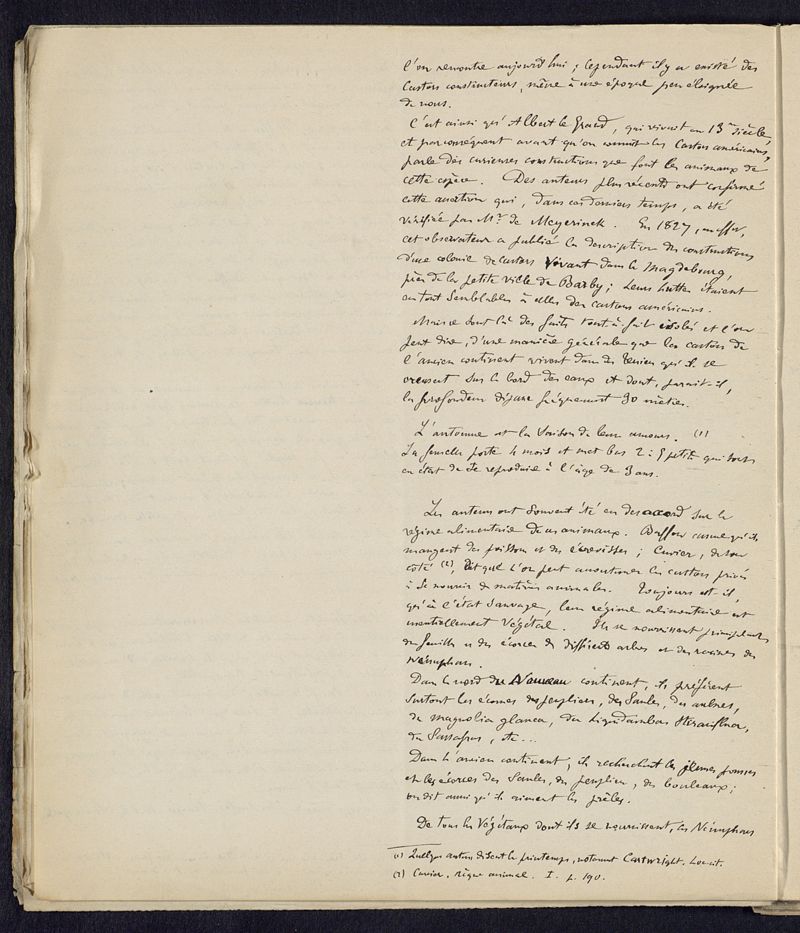 l'on rencontre aujourd'hui ; cependant il y a existé des
Castors constructeurs, même à une époque peu éloignée
de nous.
C'est ainsi qu'Albert le Grand, qui vivait au 13me siècle
et par conséquent avant qu'on connût les Castors américains,
parle des curieuses constructions que font les animaux de
cette espèce. Des auteurs plus récents ont confirmé
cette assertion qui, dans ces derniers temps, a été
vérifiée par Mr. de Meyerinck. En 1827, en effet,
cet observateur a publié la description des constructions
d'une colonie de castors vivant dans le Magdebourg,
près de la petite ville de Barby ; leurs huttes étaient
en tout semblables à celles des castors américains.
Mais ce sont là des faits tout-à-fait isolés et l'on
peut dire, d'une manière générale que les castors de
l'ancien continent vivent dans des terriers qu'ils se
creusent sur le bord des eaux et dont, paraît-il,
la profondeur dépasse fréquemment 30 mètres.
L'automne est la saison de leurs amours. (1)
La femelle porte 4 mois et met bas 2 à 5 petits qui sont
en état de se reproduire à l'âge de 3 ans.
Les auteurs ont souvent été en desaccord sur le
régime alimentaire de ces animaux. Buffon assure qu'ils
mangent des poissons et des écrevisses ; Cuvier, de son
côté (2), dit que l'on peut accoutumer les castors privés
à se nourrir de matières animales. Toujours est-il,
qu'à l'état sauvage, leur régime alimentaire est
essentiellement végétal. Ils se nourrissent principalement
de feuilles et des écorces de différents arbres et des racines des
Nénuphars.
Dans le nord du Nouveau continent, ils préfèrent
surtout les écorces des peupliers, des Saules, des aulnes,
du magnolia glauca, du Liquidambar Styraciflua,
du Sassafras, etc...
Dans l'ancien continent, ils recherchent les jeunes pousses
et les écorces des Saules, des peupliers, des bouleaux ;
on dit aussi qu'ils aiment les prêles.
De tous les végétaux dont ils se nourrissent, les Nénuphars
(1) Quelques auteurs disent le printemps, notamment Cartwright. Loc. cit.
(2) Cuvier, règne animal. I. p. 190.